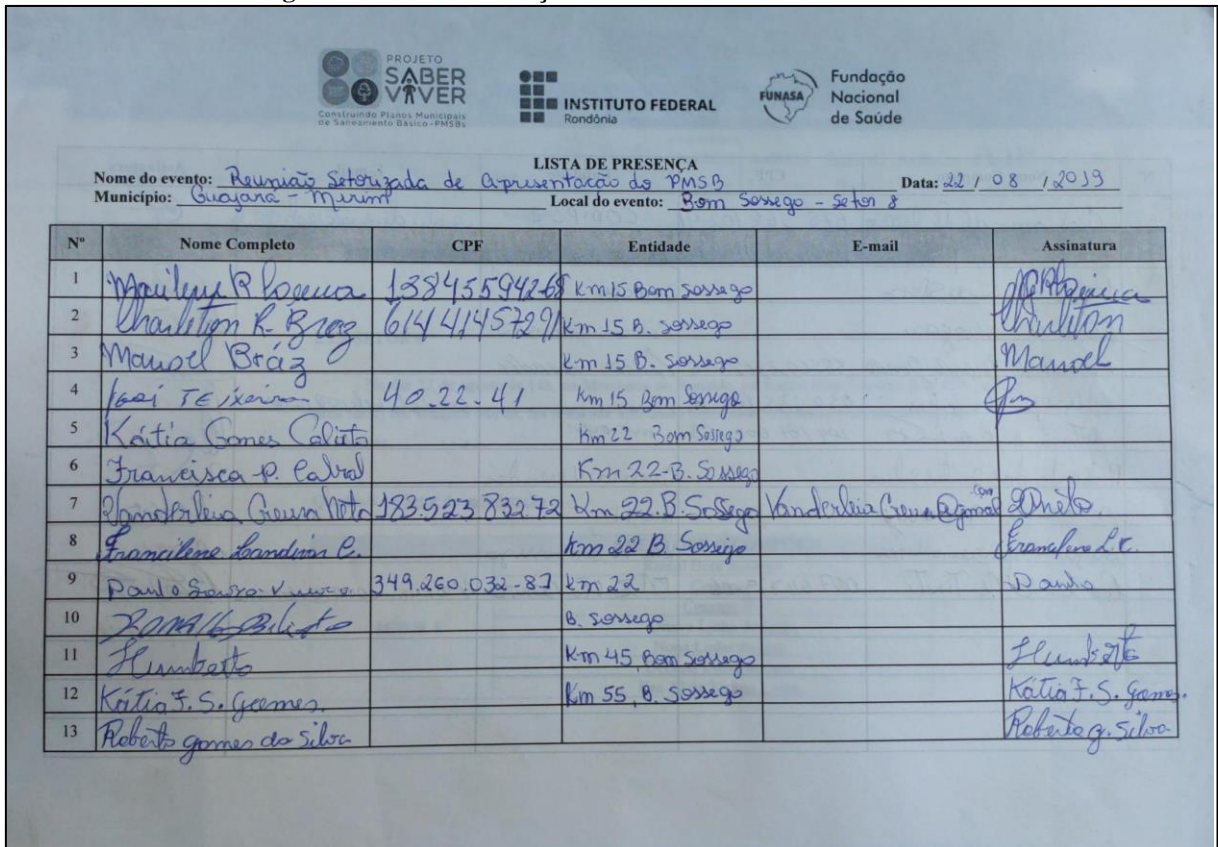 PROJETO
SABER
VIVER
Construindo Planos Municipais
de Saneamento Básico-PMSBs
INSTITUTO FEDERAL
Rondônia
FUNASA
Fundação
Nacional
de Saúde
LISTA DE PRESENÇA
Nome do evento: Reunião Setorizada de apresentação do PMSB Data: 22 / 08 / 2019
Município: Guajará - Mirim Local do evento: Bom Sossego - Setor 8
Nº Nome Completo CPF Entidade E-mail Assinatura
1 13845594268 Km 15 Bom Sossego
2 Charleton R. Braz 61441457291 Km 15 B. Sossego Charleton
3 Manoel Bráz Km 15 B. Sossego Manoel
4 TEixeira 40.22.41 Km 15 Bom Sossego
5 Kátia Gomes Km 22 Bom Sossego
6 Francisca P. Cabral Km 22-B. Sossego
7 Vanderleia Neto 183.523 83272 Km 22.B.Sossego
8 Francilene Landim C. Km 22 B. Sossego Francilene L.C.
9 Paulo 349.260.032-87 Km 22 Paulo
10 B. Sossego
11 Humberto Km 45, Bom Sossego Humberto
12 Kátia F. S. Gomes. Km 55, B. Sossego Kátia F. S. Gomes.
13 Roberto gomes da Silva Roberto g. Silva